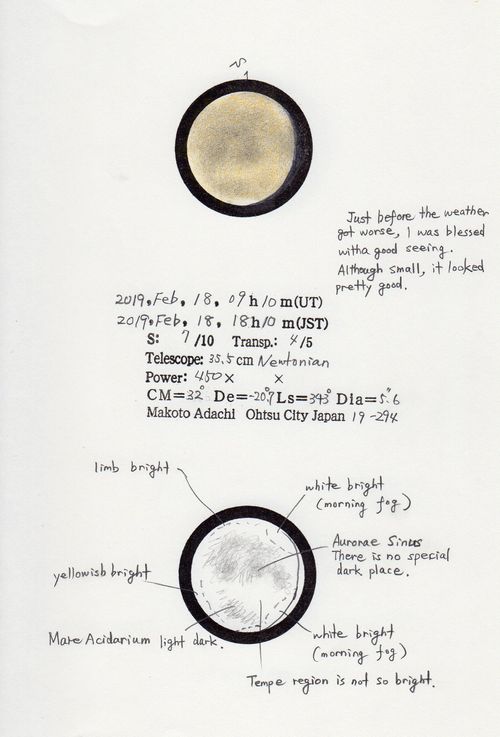 Just before the weather
got worse, I was blessed
with a good seeing.
Although small, it looked
pretty good.
2019, Feb, 18, 09h10m(UT)
2019, Feb, 18, 18h10m(JST)
S: 7/10 Transp.: 4/5
Telescope: 35.5cm Newtonian
Power: 450× ×
CM=32° De=-20.°7 Ls=343° Dia=5."6
Makoto Adachi Ohtsu City Japan 19-294
limb bright
white bright
(morning fog)
Auronae Sinus
There is no special
dark place.
yellowish bright
Mare Acidarium light dark.
white bright
(morning fog)
Tempe region is not so bright.